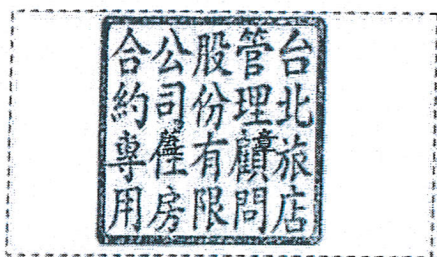 台北旅店
管理顧問
股份有限
公司住房
合約專用